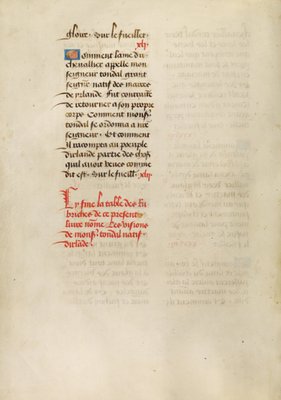 gloire. Sur le fueillet.
xlj.
Comment lame du
chevallier appelle mon
seigneur tondal grant
seigneur natif des marces
de irlande. Fut contrainte
de retourner a son propre
corps. Comment mons
tondal se ordonna a nre
seigneur. Et comment
il racompta au peuple
dirlande partie des choses
quil avoit veues comme
dit est. Sur le fueillt. xlij.
Cy fine la table des Ru
briches de ce present
livre nomme Les visions
de mons. tondal natif
dirlade.